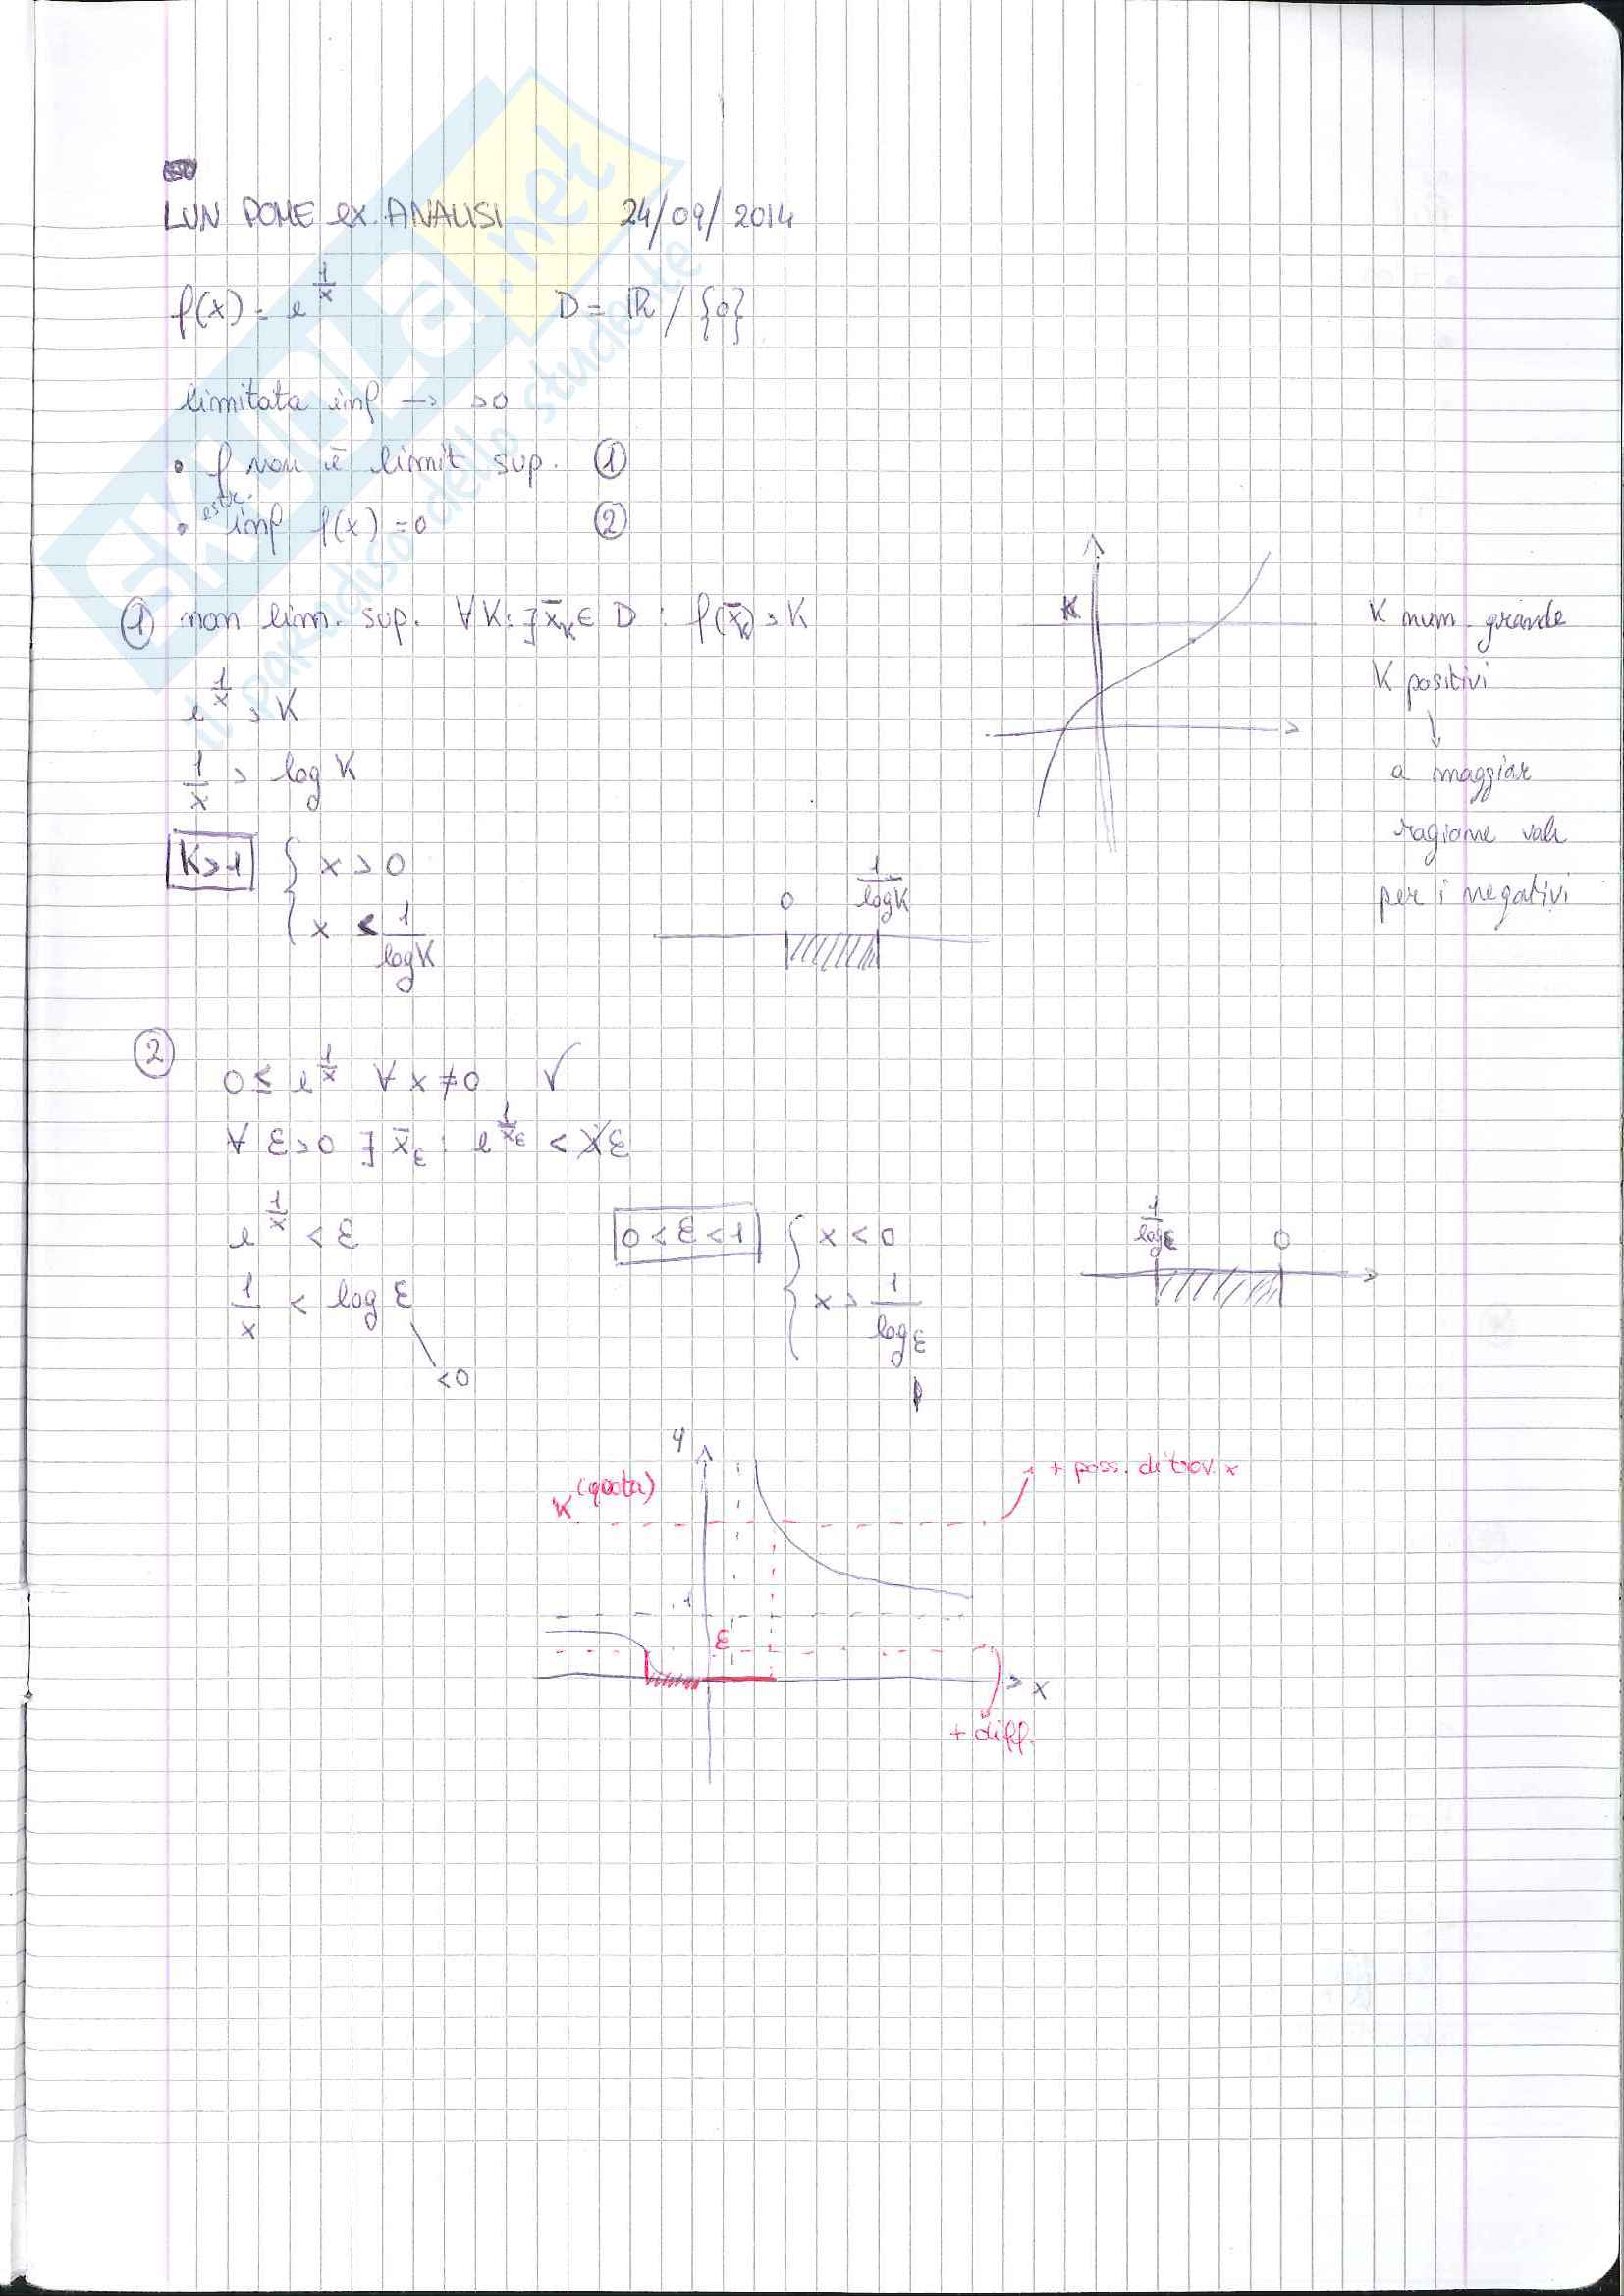 LUN POME ex. ANALISI 24/09/2014
f(x) = e^{1/x} D = ℝ / {0}
limitata inf → >0
• f non è limit sup. ①
• estr. inf f(x) = 0 ②
① non lim. sup. ∀K: ∃ x̄_K ∈ D : f(x̄_K) > K
e^{1/x} > K
1/x > log K
K>1 { x > 0
x < 1/log K
0 1/log K
K
K num. grande
K positivi
↓
a maggior
ragione vale
per i negativi
② 0 ≤ e^{1/x} ∀ x ≠ 0 ✓
∀ ε>0 ∃ x̄_ε : e^{1/x̄_ε} < ε
e^{1/x} < ε
1/x < log ε
<0
0 < ε < 1 { x < 0
x > 1/log ε
1/log ε 0
y
K (quota)
+ poss. di trov. x
1
ε
x
+ diff.
ekuola.net
il paradiso dello studente